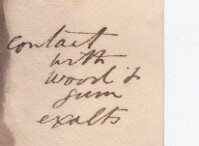 contact
with
wood &
gum
exalts